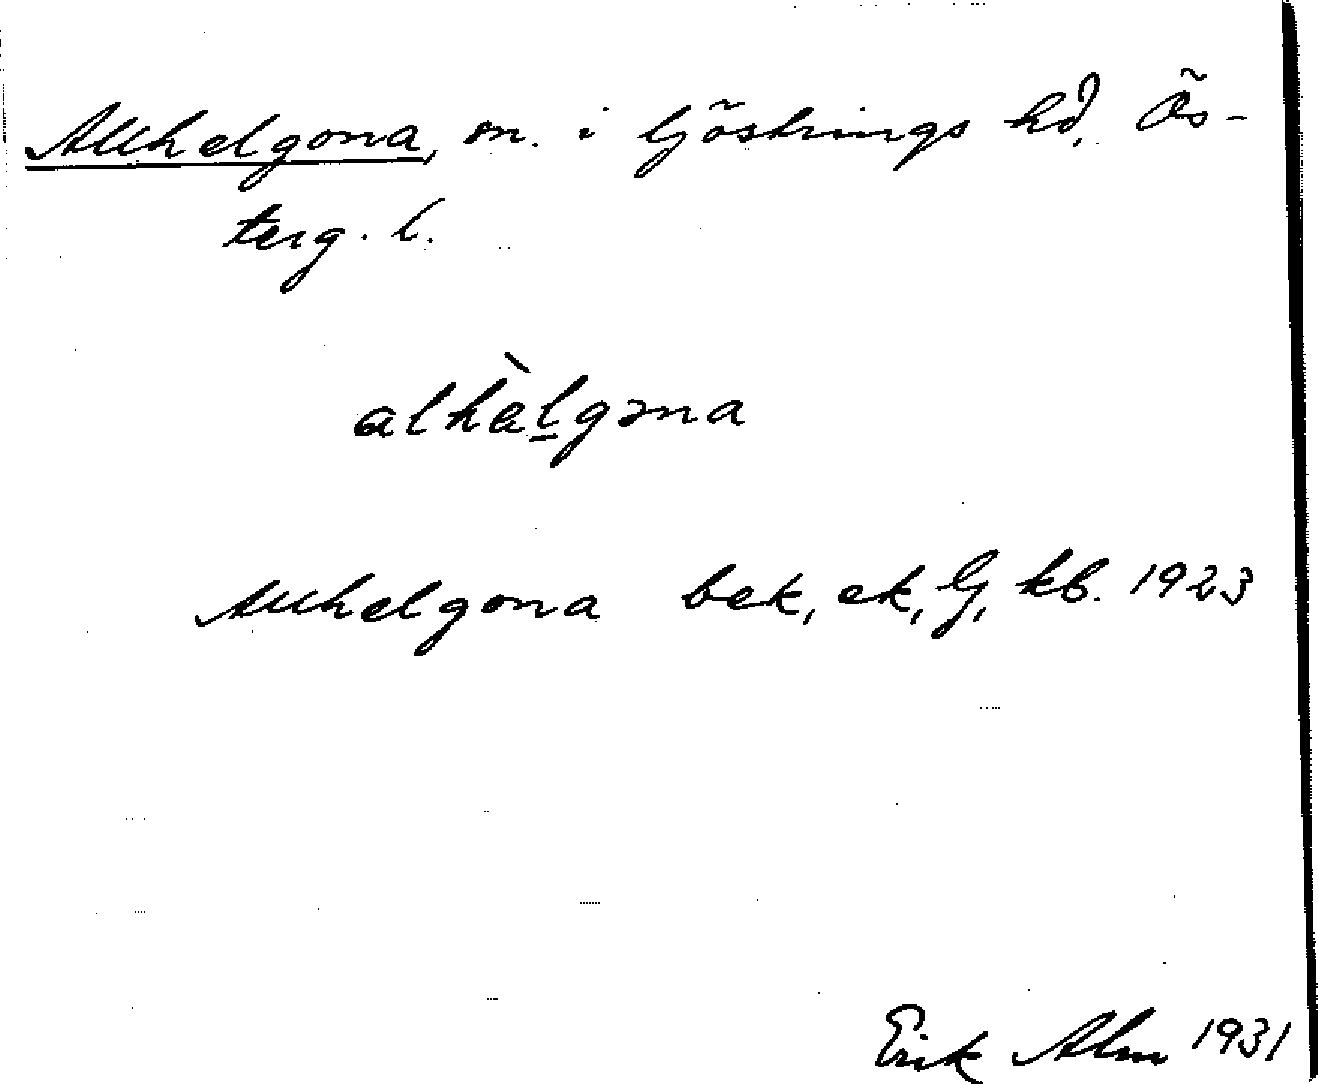 Allhelgona, sn. i Göstrings hd. Ös-
terg. l.
alhèlgəna
Allhelgona bek, ek, Gj, kb. 1923
Erik Alm 1931